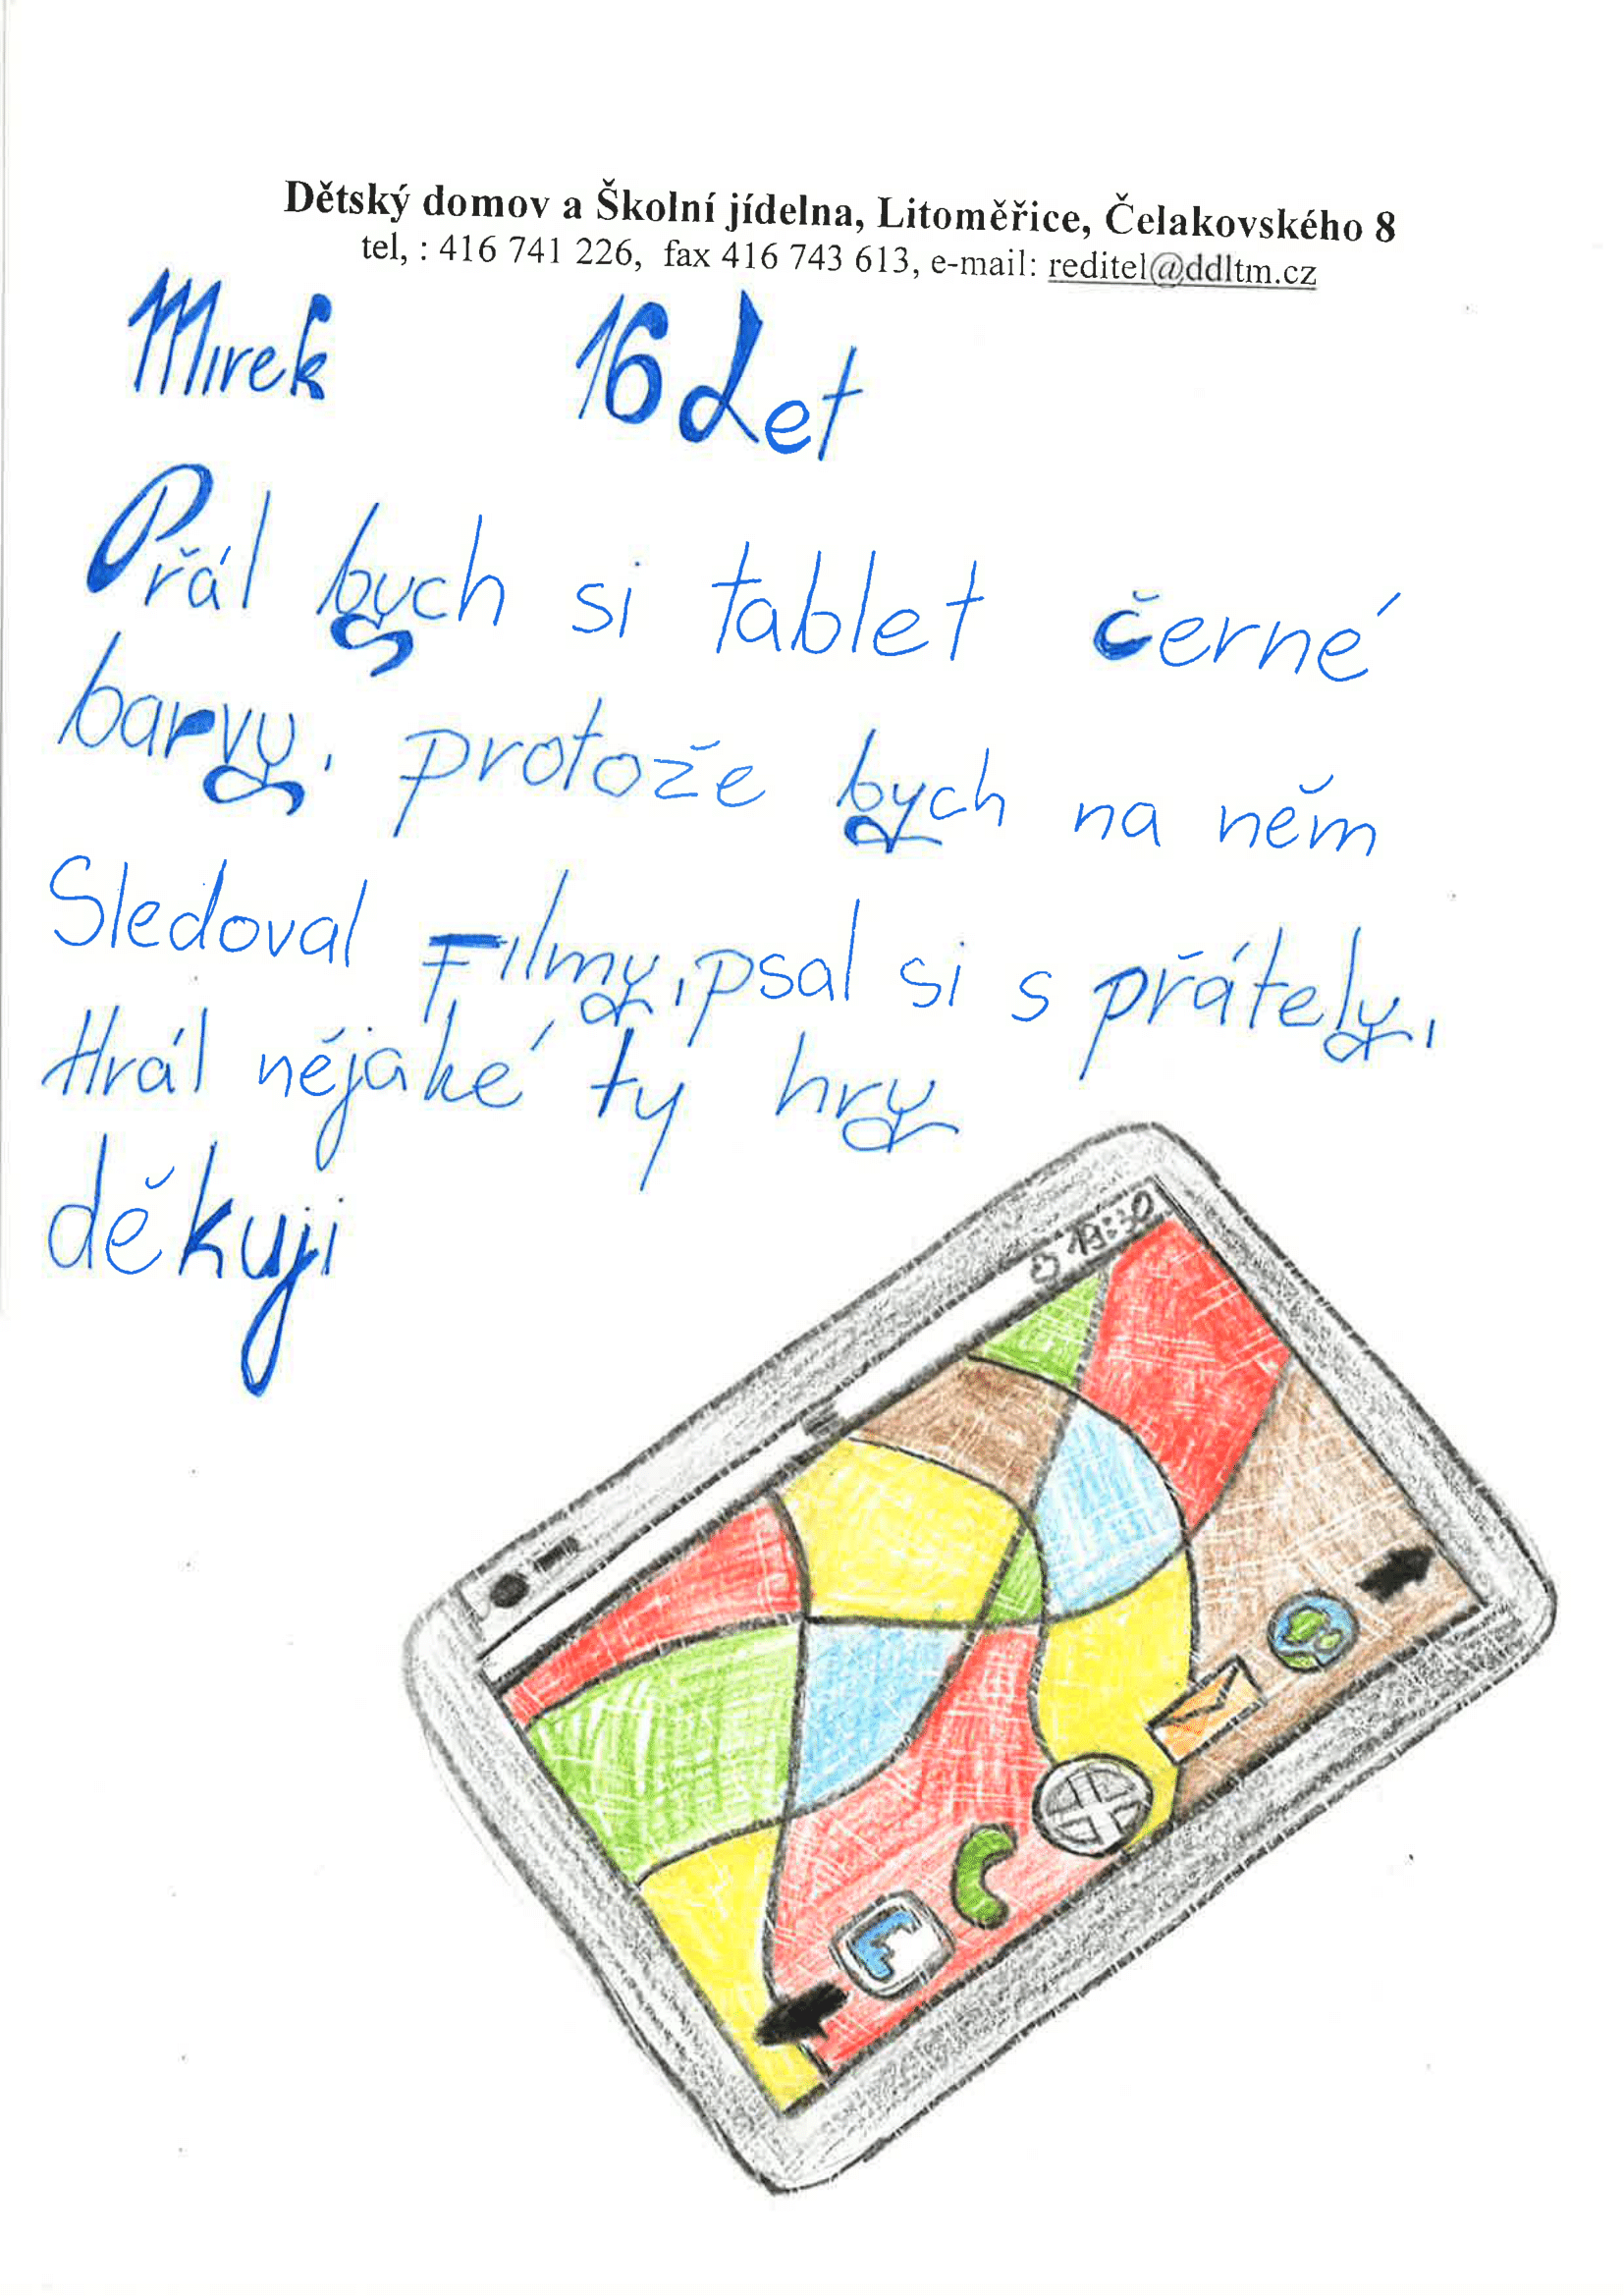 Dětský domov a Školní jídelna, Litoměřice, Čelakovského 8
tel, : 416 741 226,  fax 416 743 613, e-mail: reditel@ddltm.cz
Mirek 16 Let
Přál bych si tablet černé
barvy, protože bych na něm
Sledoval Filmy, psal si s přátely,
Hrál nějaké ty hry
děkuji
19:30
F